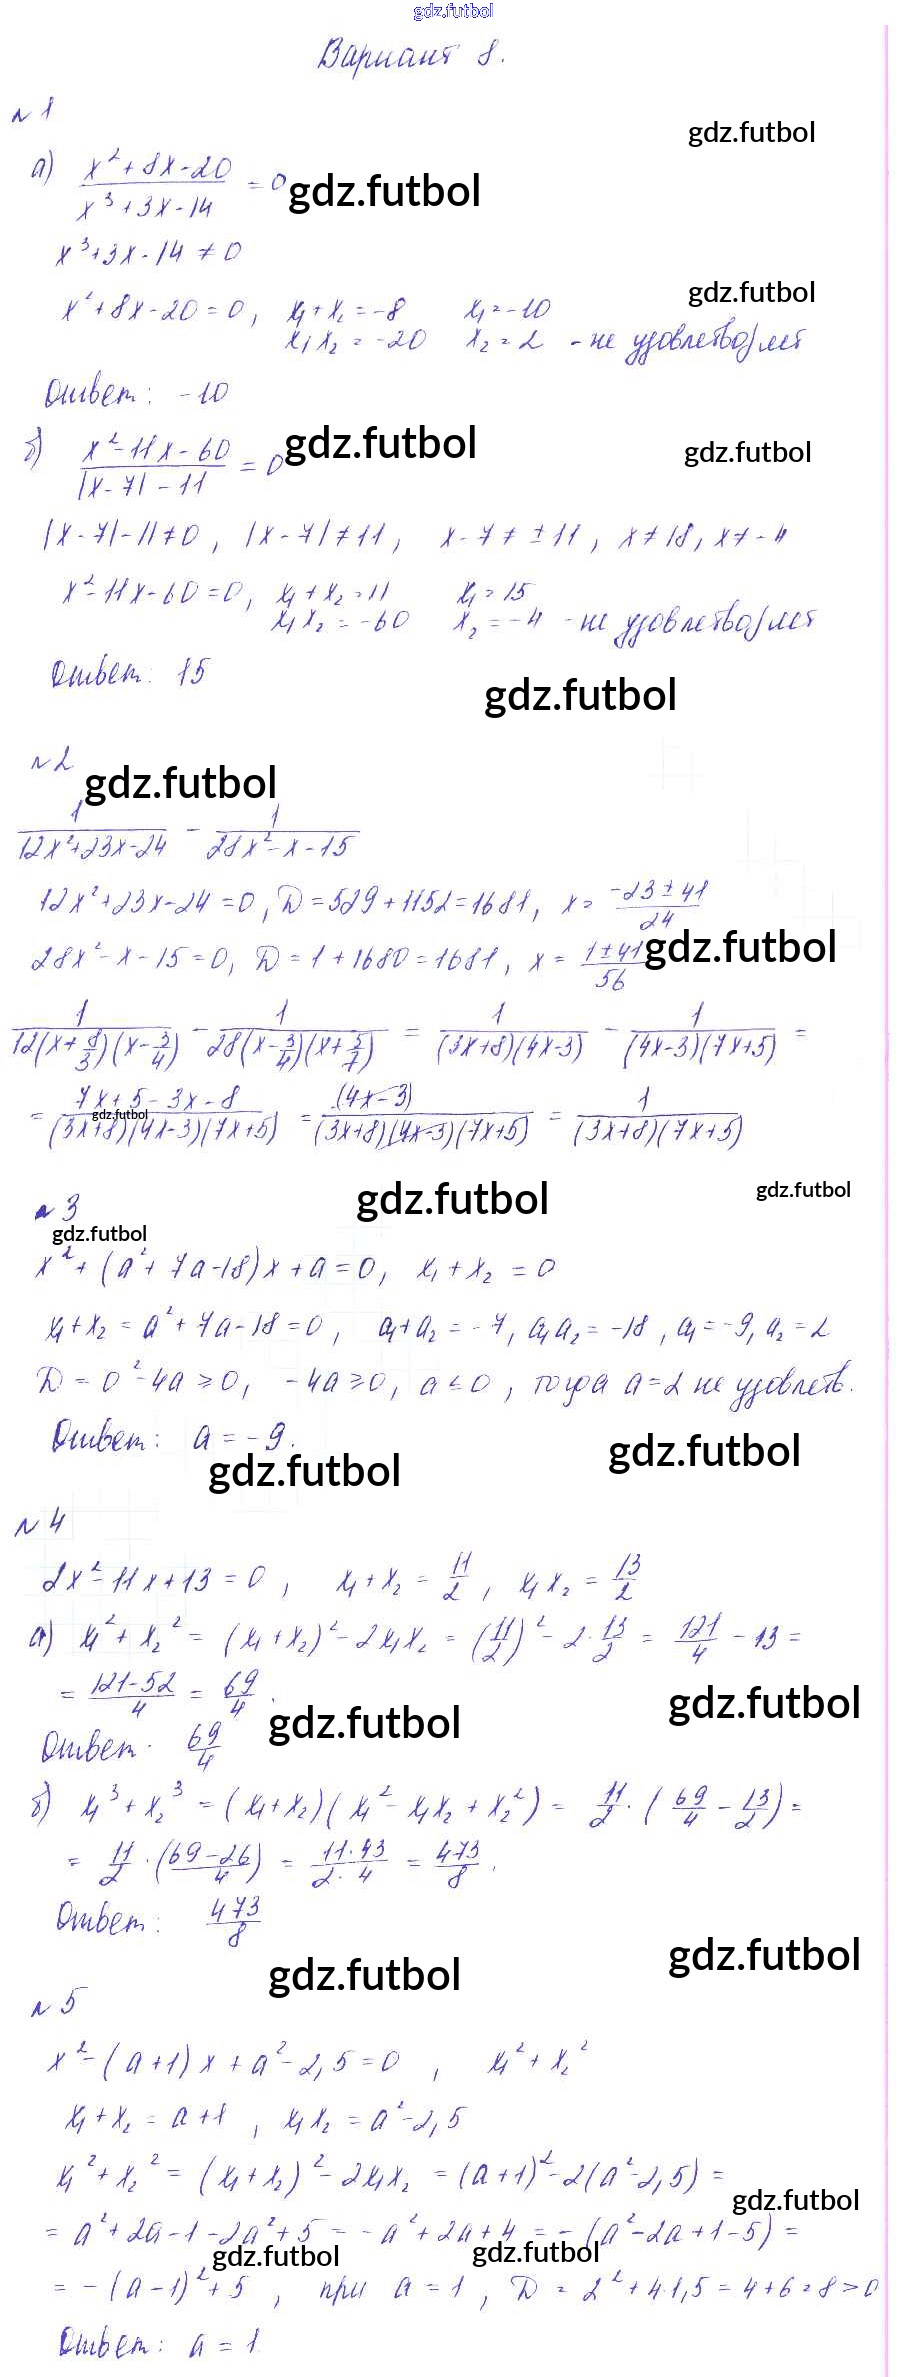 gdz.futbol
Вариант 8.
№ 1
gdz.futbol
а) (x² + 8x - 20)/(x³ + 3x - 14) = 0
gdz.futbol
x³ + 3x - 14 ≠ 0
gdz.futbol
x² + 8x - 20 = 0, x₁ + x₂ = -8 x₁ = -10
x₁ x₂ = -20 x₂ = 2 - не удовлетворяет
Ответ: -10
б) (x² - 11x - 60)/(|x - 7| - 11) = 0
gdz.futbol
gdz.futbol
|x - 7| - 11 ≠ 0, |x - 7| ≠ 11, x - 7 ≠ ± 11, x ≠ 18, x ≠ -4
x² - 11x - 60 = 0, x₁ + x₂ = 11 x₁ = 15
x₁ x₂ = -60 x₂ = -4 - не удовлетворяет
Ответ: 15
gdz.futbol
№ 2
gdz.futbol
1/(12x² + 23x - 24) - 1/(28x² - x - 15)
12x² + 23x - 24 = 0, D = 529 + 1152 = 1681, x = (-23 ± 41)/24
28x² - x - 15 = 0, D = 1 + 1680 = 1681, x = (1 ± 41)/56
gdz.futbol
1/(12(x + 8/3)(x - 3/4)) - 1/(28(x - 3/4)(x + 5/7)) = 1/((3x+8)(4x-3)) - 1/((4x-3)(7x+5)) =
= (7x + 5 - 3x - 8)/((3x+8)(4x-3)(7x+5)) = (4x-3)/((3x+8)(4x-3)(7x+5)) = 1/((3x+8)(7x+5))
gdz.futbol
№ 3
gdz.futbol
gdz.futbol
gdz.futbol
x² + (a² + 7a - 18)x + a = 0, x₁ + x₂ = 0
x₁ + x₂ = a² + 7a - 18 = 0, a₁ + a₂ = -7, a₁ a₂ = -18, a₁ = -9, a₂ = 2
D = 0² - 4a ≥ 0, -4a ≥ 0, a ≤ 0, тогда a = 2 не удовлетв.
Ответ: a = -9.
gdz.futbol
gdz.futbol
№ 4
2x² - 11x + 13 = 0, x₁ + x₂ = 11/2, x₁ x₂ = 13/2
а) x₁² + x₂² = (x₁ + x₂)² - 2x₁x₂ = (11/2)² - 2·13/2 = 121/4 - 13 =
= (121 - 52)/4 = 69/4.
gdz.futbol
Ответ. 69/4
gdz.futbol
б) x₁³ + x₂³ = (x₁ + x₂)(x₁² - x₁x₂ + x₂²) = 11/2 · (69/4 - 13/2) =
= 11/2 · ((69 - 26)/4) = (11·43)/(2·4) = 473/8.
Ответ: 473/8
gdz.futbol
gdz.futbol
№ 5
x² - (a+1)x + a² - 2,5 = 0, x₁² + x₂²
x₁ + x₂ = a + 1, x₁ x₂ = a² - 2,5
x₁² + x₂² = (x₁ + x₂)² - 2x₁x₂ = (a+1)² - 2(a² - 2,5) =
gdz.futbol
= a² + 2a - 1 - 2a² + 5 = -a² + 2a + 4 = -(a² - 2a + 1 - 5) =
gdz.futbol
gdz.futbol
= -(a - 1)² + 5, при a = 1, D = 2² + 4·1,5 = 4 + 6 = 8 > 0
Ответ: a = 1